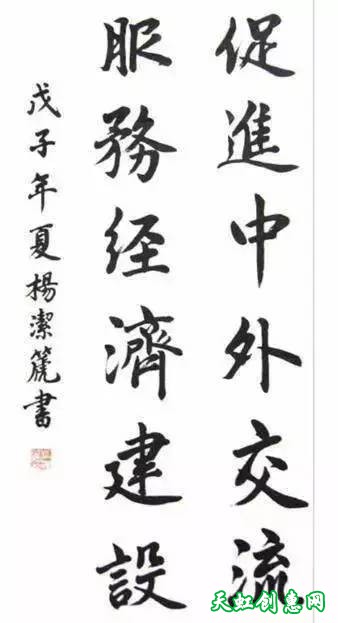 促進中外交流
服務经濟建設
戊子年夏楊潔篪書
天虹创意网